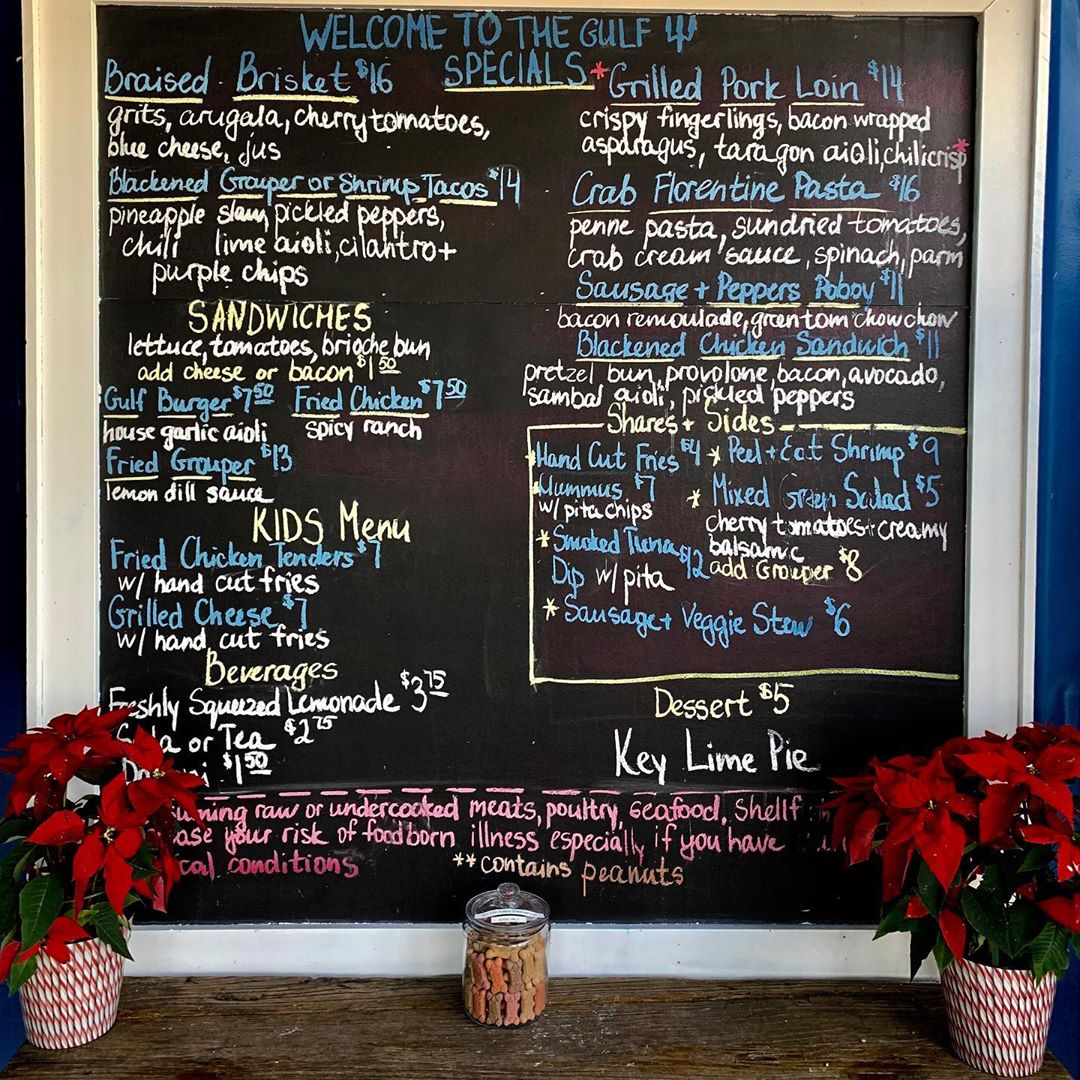 WELCOME TO THE GULF
SPECIALS
Braised Brisket $16
grits, arugala, cherry tomatoes,
blue cheese, jus
Blackened Grouper or Shrimp Tacos $14
pineapple slaw, pickled peppers,
chili lime aioli, cilantro +
purple chips
*Grilled Pork Loin $14
crispy fingerlings, bacon wrapped
asparagus, taragon aioli, chili crisp*
Crab Florentine Pasta $16
penne pasta, sundried tomatoes,
crab cream sauce, spinach, parm
Sausage + Peppers Poboy $11
bacon remoulade, green tom chow chow
Blackened Chicken Sandwich $11
pretzel bun, provolone, bacon, avocado,
sambal aioli, pickled peppers
SANDWICHES
lettuce, tomatoes, brioche bun
add cheese or bacon $1.50
Gulf Burger $7.50 Fried Chicken $7.50
house garlic aioli spicy ranch
Fried Grouper $13
lemon dill sauce
KIDS Menu
Fried Chicken Tenders $7
w/ hand cut fries
Grilled Cheese $7
w/ hand cut fries
Beverages
Freshly Squeezed Lemonade $3.75
or Tea $2.75
$1.50
Shares + Sides
*Hand Cut Fries $4
*Hummus $7
w/ pita chips
*Smoked Tuna $12
Dip w/ pita
*Peel + Eat Shrimp $9
*Mixed Green Salad $5
cherry tomatoes + creamy
balsamic
add Grouper $8
*Sausage + Veggie Stew $6
Dessert $5
Key Lime Pie
raw or undercooked meats, poultry, seafood,
your risk of foodborn illness especially if you have
conditions
**contains peanuts